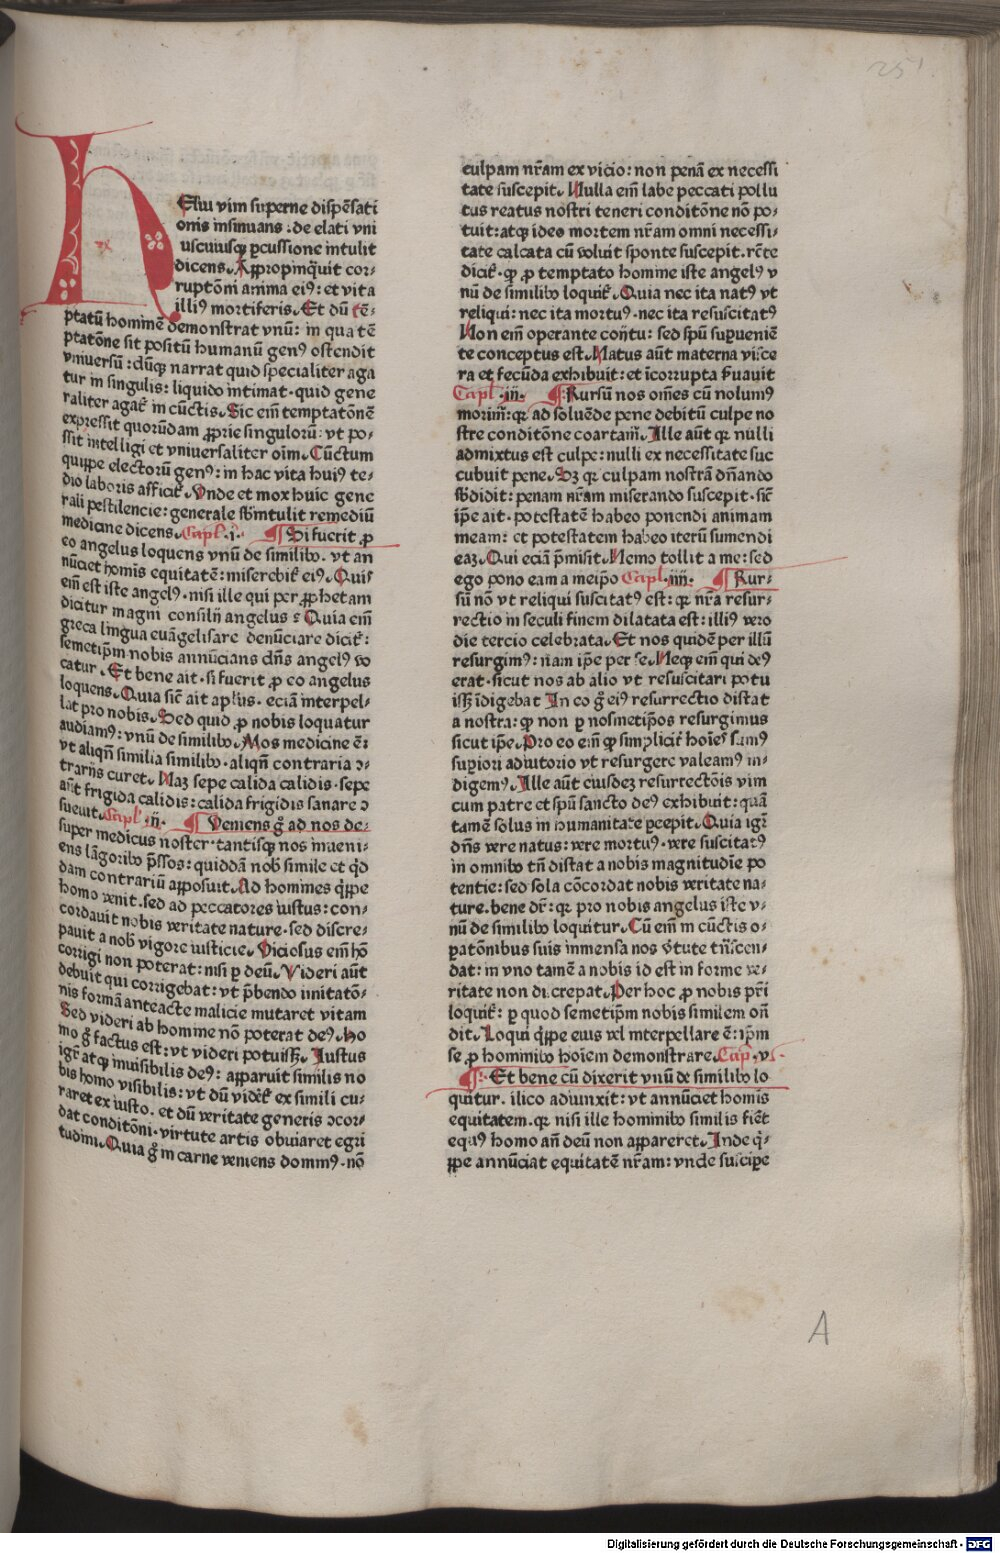 251
HEliu vim superne dispēsati
onis insinuans : de elati vni
uscuiusqꝫ ꝑcussione intulit
dicens. Aꝓpropinq̄uit cor⸗
ruptōni anima eiꝰ : et vita
illiꝰ mortiferis. Et dū tē⸗
ptatū hominē demonstrat vnū : in qua tē
ptatōne sit positū humanū genꝰ ostendit
vniuersū : dūqꝫ narrat quid specialiter aga
tur in singulis : liquido intimat. quid gene
raliter agat̄ in cūctis. Sic em̄ temptatōnē
expressit quorūdam ꝓprie singulorū : vt po⸗
ssit intelligi et vniuersaliter oīm. Cūctum
quippe electorū genꝰ : in hac vita huiꝰ te⸗
dio laboris afficit̄. Unde et mox huic gene
rali pestilencie : generale sb̄intulit remediū
medicine dicens. Capl. i. ¶ Si fuerit ꝓ
eo angelus loquens vnū de similibꝫ. vt an
nūciet homīs equitatē : miserebit̄ eiꝰ. Quis
em̄ est iste angelꝰ. nisi ille qui per ꝓphetam
dicitur magni consilij angelus ? Quia em̄
greca lingua euāgelisare denūciare dicit̄ :
semetip̄m nobis annūcians dn̄s angelꝰ vo
catur. Et bene ait. si fuerit ꝓ eo angelus
loquens. Quia sic̄ ait apl̄us. eciā interpel⸗
lat pro nobis. Sed quid ꝓ nobis loquatur
audiamꝰ : vnū de similibꝫ. Mos medicine ē :
vt aliqn̄ similia similibꝫ. aliqn̄ contraria ↄ⸗
trarijs curet. Naꝫ sepe calida calidis. sepe
aūt frigida calidis : calida frigidis sanare ↄ
sueuit. Capl. ii. ¶ Veniens gͦ ad nos de⸗
super medicus noster. tantisqꝫ nos inueni⸗
ens lāgoribꝫ p̄ssos : quiddā nob̄ simile et qd̄
dam contrariū apposuit. Ad homines qͥppe
homo venit. sed ad peccatores iustus : con⸗
cordauit nobis veritate nature. sed discre⸗
pauit a nob̄ vigore iusticie. Viciosus em̄ hō
corrigi non poterat : nisi ꝑ deū. Videri aūt
debuit qui corrigebat : vt p̄bendo imitatō⸗
nis formā anteacte malicie mutaret vitam
Sed videri ab homine nō poterat deꝰ. ho
mo gͦ factus est : vt videri potuissꝫ. Justus
igr̄ atqꝫ inuisibilis deꝰ : apparuit similis no
bis homo visibilis : vt dū videt̄ ex simili cu⸗
raret ex iusto. et dū veritate generis ↄcor⸗
dat conditōni. virtute artis obuiaret egri
tudini. Quia gͦ in carne veniens dominꝰ. nō
culpam nr̄am ex vicio : non penā ex necessi
tate suscepit. Nulla em̄ labe peccati pollu
tus reatus nostri teneri conditōne nō po⸗
tuit : atqꝫ ideo mortem nr̄am omni necessi⸗
tate calcata cū voluit sponte suscepit. rc̄te
dicit̄. qꝙ ꝓ temptato homine iste angelꝰ v
nū de similibꝫ loquit̄. Quia nec ita natꝰ vt
reliqui : nec ita mortuꝰ. nec ita resuscitatꝰ
Non em̄ operante coītu : sed spū suꝑueniē
te conceptus est. Natus aūt materna visce
ra et fecūda exhibuit : et īcorrupta ẜuauit
Capl. iii. ¶ Rursū nos om̄es cū nolumꝰ
morimr̄ : qꝛ ad soluēde pene debitū culpe no
stre conditōne coartamr̄. Ille aūt qꝛ nulli
admixtus est culpe : nulli ex necessitate suc
cubuit pene. Sꝫ qꝛ culpam nostrā dn̄ando
sb̄didit : penam nr̄am miserando suscepit. sic̄
ip̄e ait. potestatē habeo ponendi animam
meam : et potestatem habeo iterū sumendi
eaꝫ. Qui eciā p̄misit. Nemo tollit a me : sed
ego pono eam a meip̄o Capl. iiii. ¶ Rur⸗
sū nō vt reliqui suscitatꝰ est : qꝛ nr̄a resur⸗
rectio in seculi finem dilatata est : illiꝰ vero
die tercio celebrata. Et nos quidē per illū
resurgimꝰ : nam ip̄e per se. Neqꝫ em̄ qui deꝰ
erat. sicut nos ab alio vt resuscitari potu
issꝫ īdigebat In eo gͦ eiꝰ resurrectio distat
a nostra : qꝙ non ꝑ nosmetip̄os resurgimus
sicut ip̄e. Pro eo em̄ qꝙ simplicit̄ hoīes sumꝰ
suꝑiori adiutorio vt resurgere valeamꝰ in⸗
digemꝰ. Ille aūt eiusdeꝫ resurrectōis vim
cum patre et spū sancto deꝰ exhibuit : quā
tamē solus in humanitate ꝑcepit. Quia igr̄
dn̄s vere natus : vere mortuꝰ. vere suscitatꝰ
in omnibꝫ tn̄ distat a nobis magnitudīe po
tentie : sed sola cōcordat nobis veritate na⸗
ture. bene dr̄ : qꝛ pro nobis angelus iste v⸗
nū de similibꝫ loquitur. Cū em̄ in cūctis o⸗
ꝑatōnibus suis inmensa nos v̄tute trn̄scen⸗
dat : in vno tamē a nobis id est in forme ve⸗
ritate non discrepat. Per hoc ꝓ nobis pr̄i
loquit̄ : ꝑ quod semetip̄m nobis similem on̄
dit. Loqui qͥppe eius vel interpellare ē : ip̄m
se ꝓ hominibꝫ hoīem demonstrare. Cap. v.
¶ Et bene cū dixerit vnū de similibꝫ lo
quitur. ilico adiunxit : vt annūciet homīs
equitatem. qꝛ nisi ille hominibꝫ similis fiēt
equꝰ homo an̄ deū non appareret. Inde qͥ⸗
ppe annūciat equitatē nr̄am : vnde suscipe
A
Digitalisierung gefördert durch die Deutsche Forschungsgemeinschaft - DFG